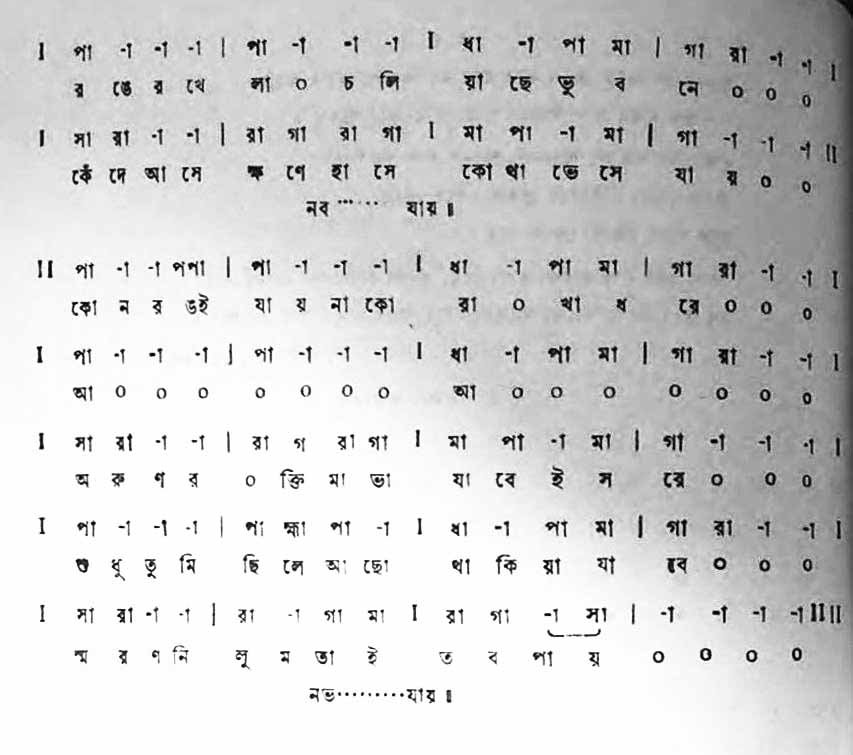 I পা -া -া -া | পা -া -া -া I ধা -া পা মা | গা রা -া -া I
র ঙে র খে লা ০ চ লি য়া ছে ভু ব নে ০ ০ ০
I সা রা -া -া | রা গা রা গা I মা পা -া মা | গা -া -া -া II
কেঁ দে আ সে ক্ষ ণে হা সে কো থা ভে সে যা য় ০ ০
নব ······ যায় ॥
II পা -া -া পপা | পা -া -া -া I ধা -া পা মা | গা রা -া -া I
কো ন র ঙই যা য় না কো রা ০ খা ধ রে ০ ০ ০
I পা -া -া -া | পা -া -া -া I ধা -া পা মা | গা রা -া -া I
আ ০ ০ ০ ০ ০ ০ ০ আ ০ ০ ০ ০ ০ ০ ০
I সা রা -া -া | রা গ রা গা I মা পা -া মা | গা -া -া -া I
অ রু ণ র ০ ক্তি মা ভা যা বে ই স রে ০ ০ ০
I পা -া -া -া | পা হ্মা পা -া I ধা -া পা মা | গা রা -া -া I
শু ধু তু মি ছি লে আ ছো থা কি য়া যা বে ০ ০ ০
I সা রা -া -া | রা -া গা মা I রা গা -া সা | -া -া -া -া II II
স্ম র ণ নি লূ ম তা ই ত ব পা য় ০ ০ ০ ০
নভ·········যায় ॥